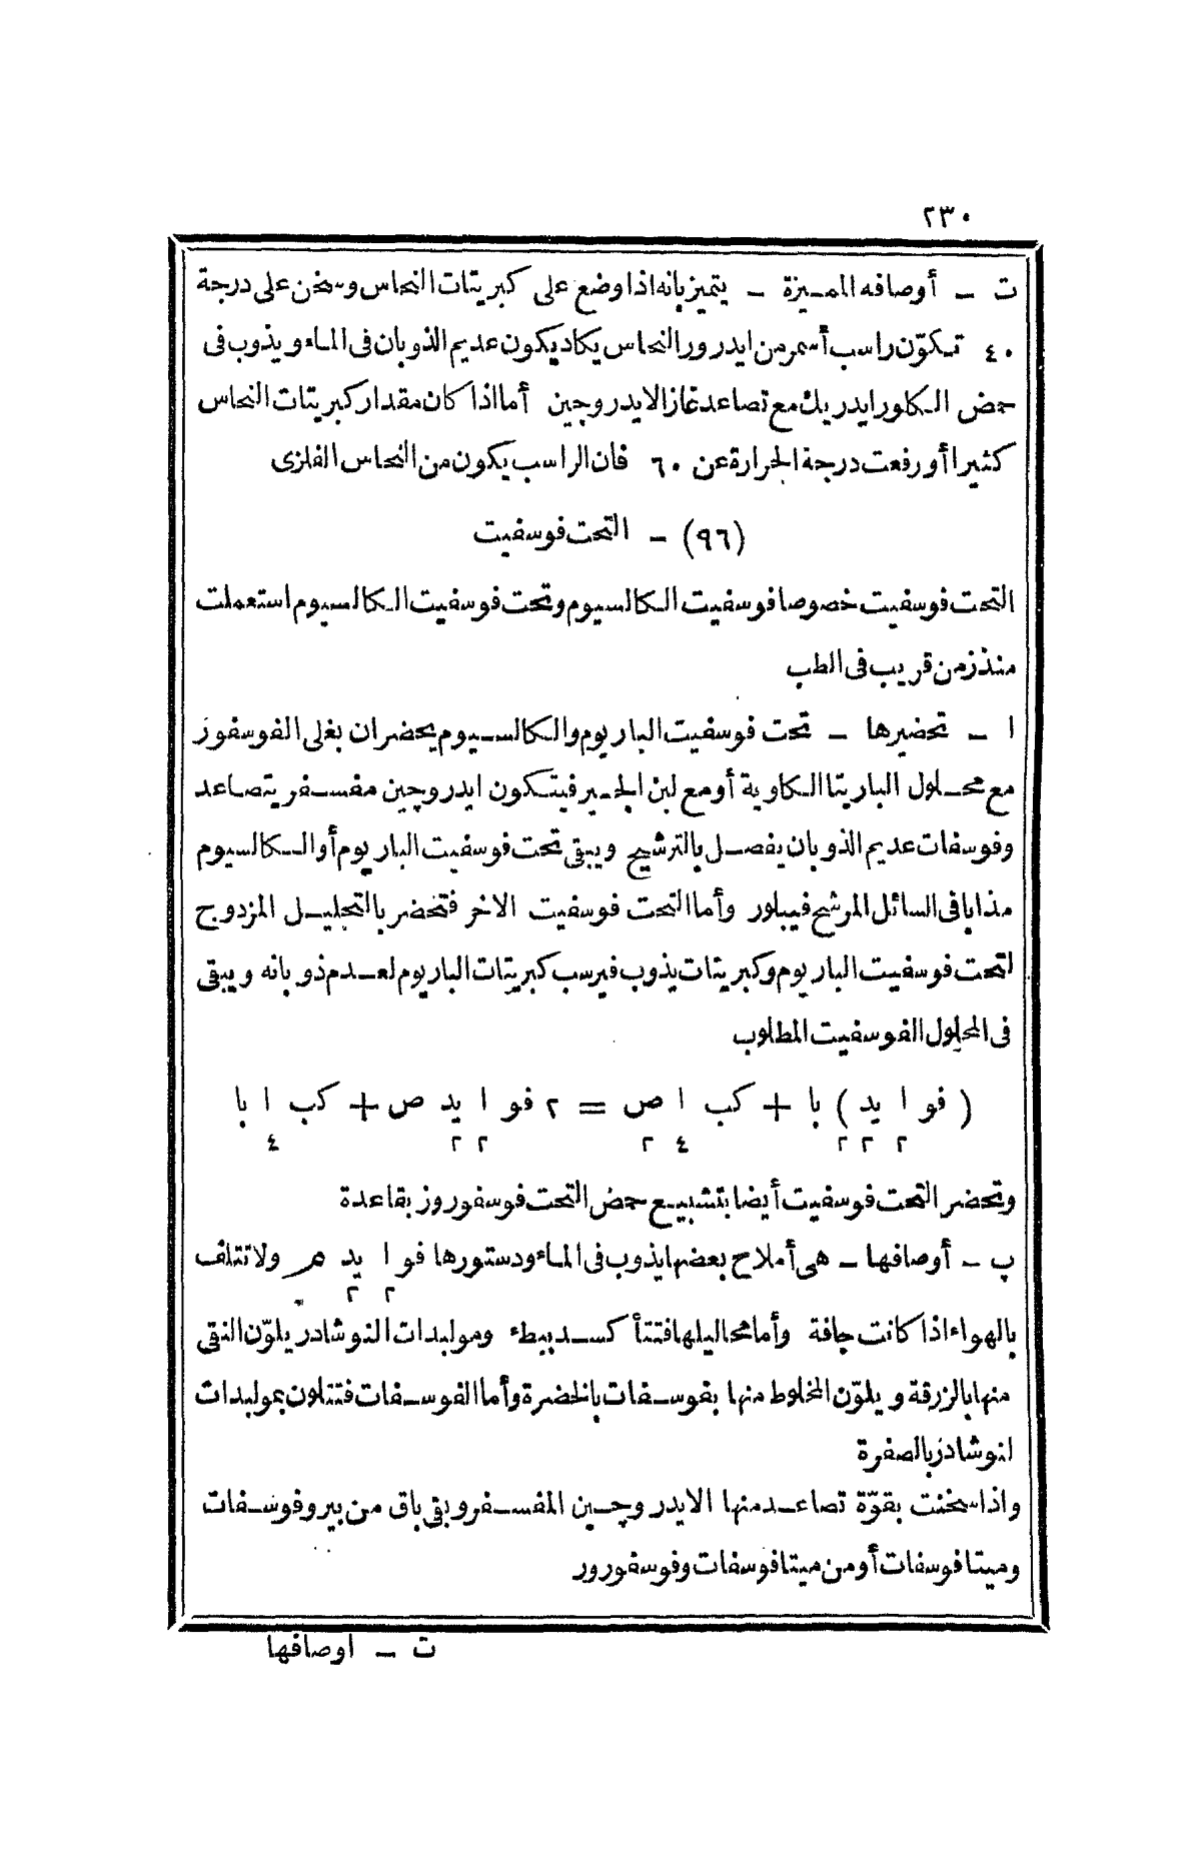 ٢٣٠
ت - أوصافه المميزة - يتميز بانه اذا وضع على كبريتات النحاس وسخن على درجة
٤٠ تكوّن راسب أسمر من ايدرور النحاس يكاد يكون عديم الذوبان فى الماء ويذوب فى
حمض الكلورايدريك مع تصاعد غاز الايدروجين أما اذا كان مقدار كبريتات النحاس
كثيرا أو رفعت درجة الحرارة عن ٦٠ فان الراسب يكون من النحاس الفلزى
(٩٦) - التحت فوسفيت
التحت فوسفيت خصوصا فوسفيت الكالسيوم وتحت فوسفيت الكالسيوم استعملت
منذ زمن قريب فى الطب
ا - تحضيرها - تحت فوسفيت الباريوم والكالسيوم يحضران بغلى الفوسفور
مع محلول الباريتا الكاوية أو مع لبن الجير فيتكون ايدروچين مفسفر يتصاعد
وفوسفات عديم الذوبان يفصل بالترشيح ويبقى تحت فوسفيت الباريوم أو الكالسيوم
مذابا فى السائل المرشح فيبلور وأما التحت فوسفيت الاخر فتحضر بالتحليل المزدوج
لتحت فوسفيت الباريوم وكبريتات يذوب فيرسب كبريتات الباريوم لعدم ذوبانه ويبقى
فى المحلول الفوسفيت المطلوب
(فو ا يد) با + كب ا ص = ٢ فو ا يد ص + كب ا با
٢ ٢ ٢ ٤ ٢ ٢ ٢ ٤
وتحضر التحت فوسفيت أيضا بتشبيع حمض التحت فوسفوروز بقاعدة
پ - أوصافها - هى أملاح بعضها يذوب فى الماء ودستورها فو ا يد م ولا تتلف
٢ ٢
بالهواء اذا كانت جافة وأما محاليلها فتتأكسد ببطء وموليدات النوشادر يلوّن النقى
منها بالزرقة ويلوّن المخلوط منها بفوسفات بالخضرة وأما الفوسفات فتتلون بموليدات
انوشادر بالصفرة
واذا سخنت بقوّة تصاعد منها الايدروچين المفسفر وبقى باق من بيروفوسفات
وميتافوسفات أو من ميتافوسفات وفوسفورور
ت - اوصافها